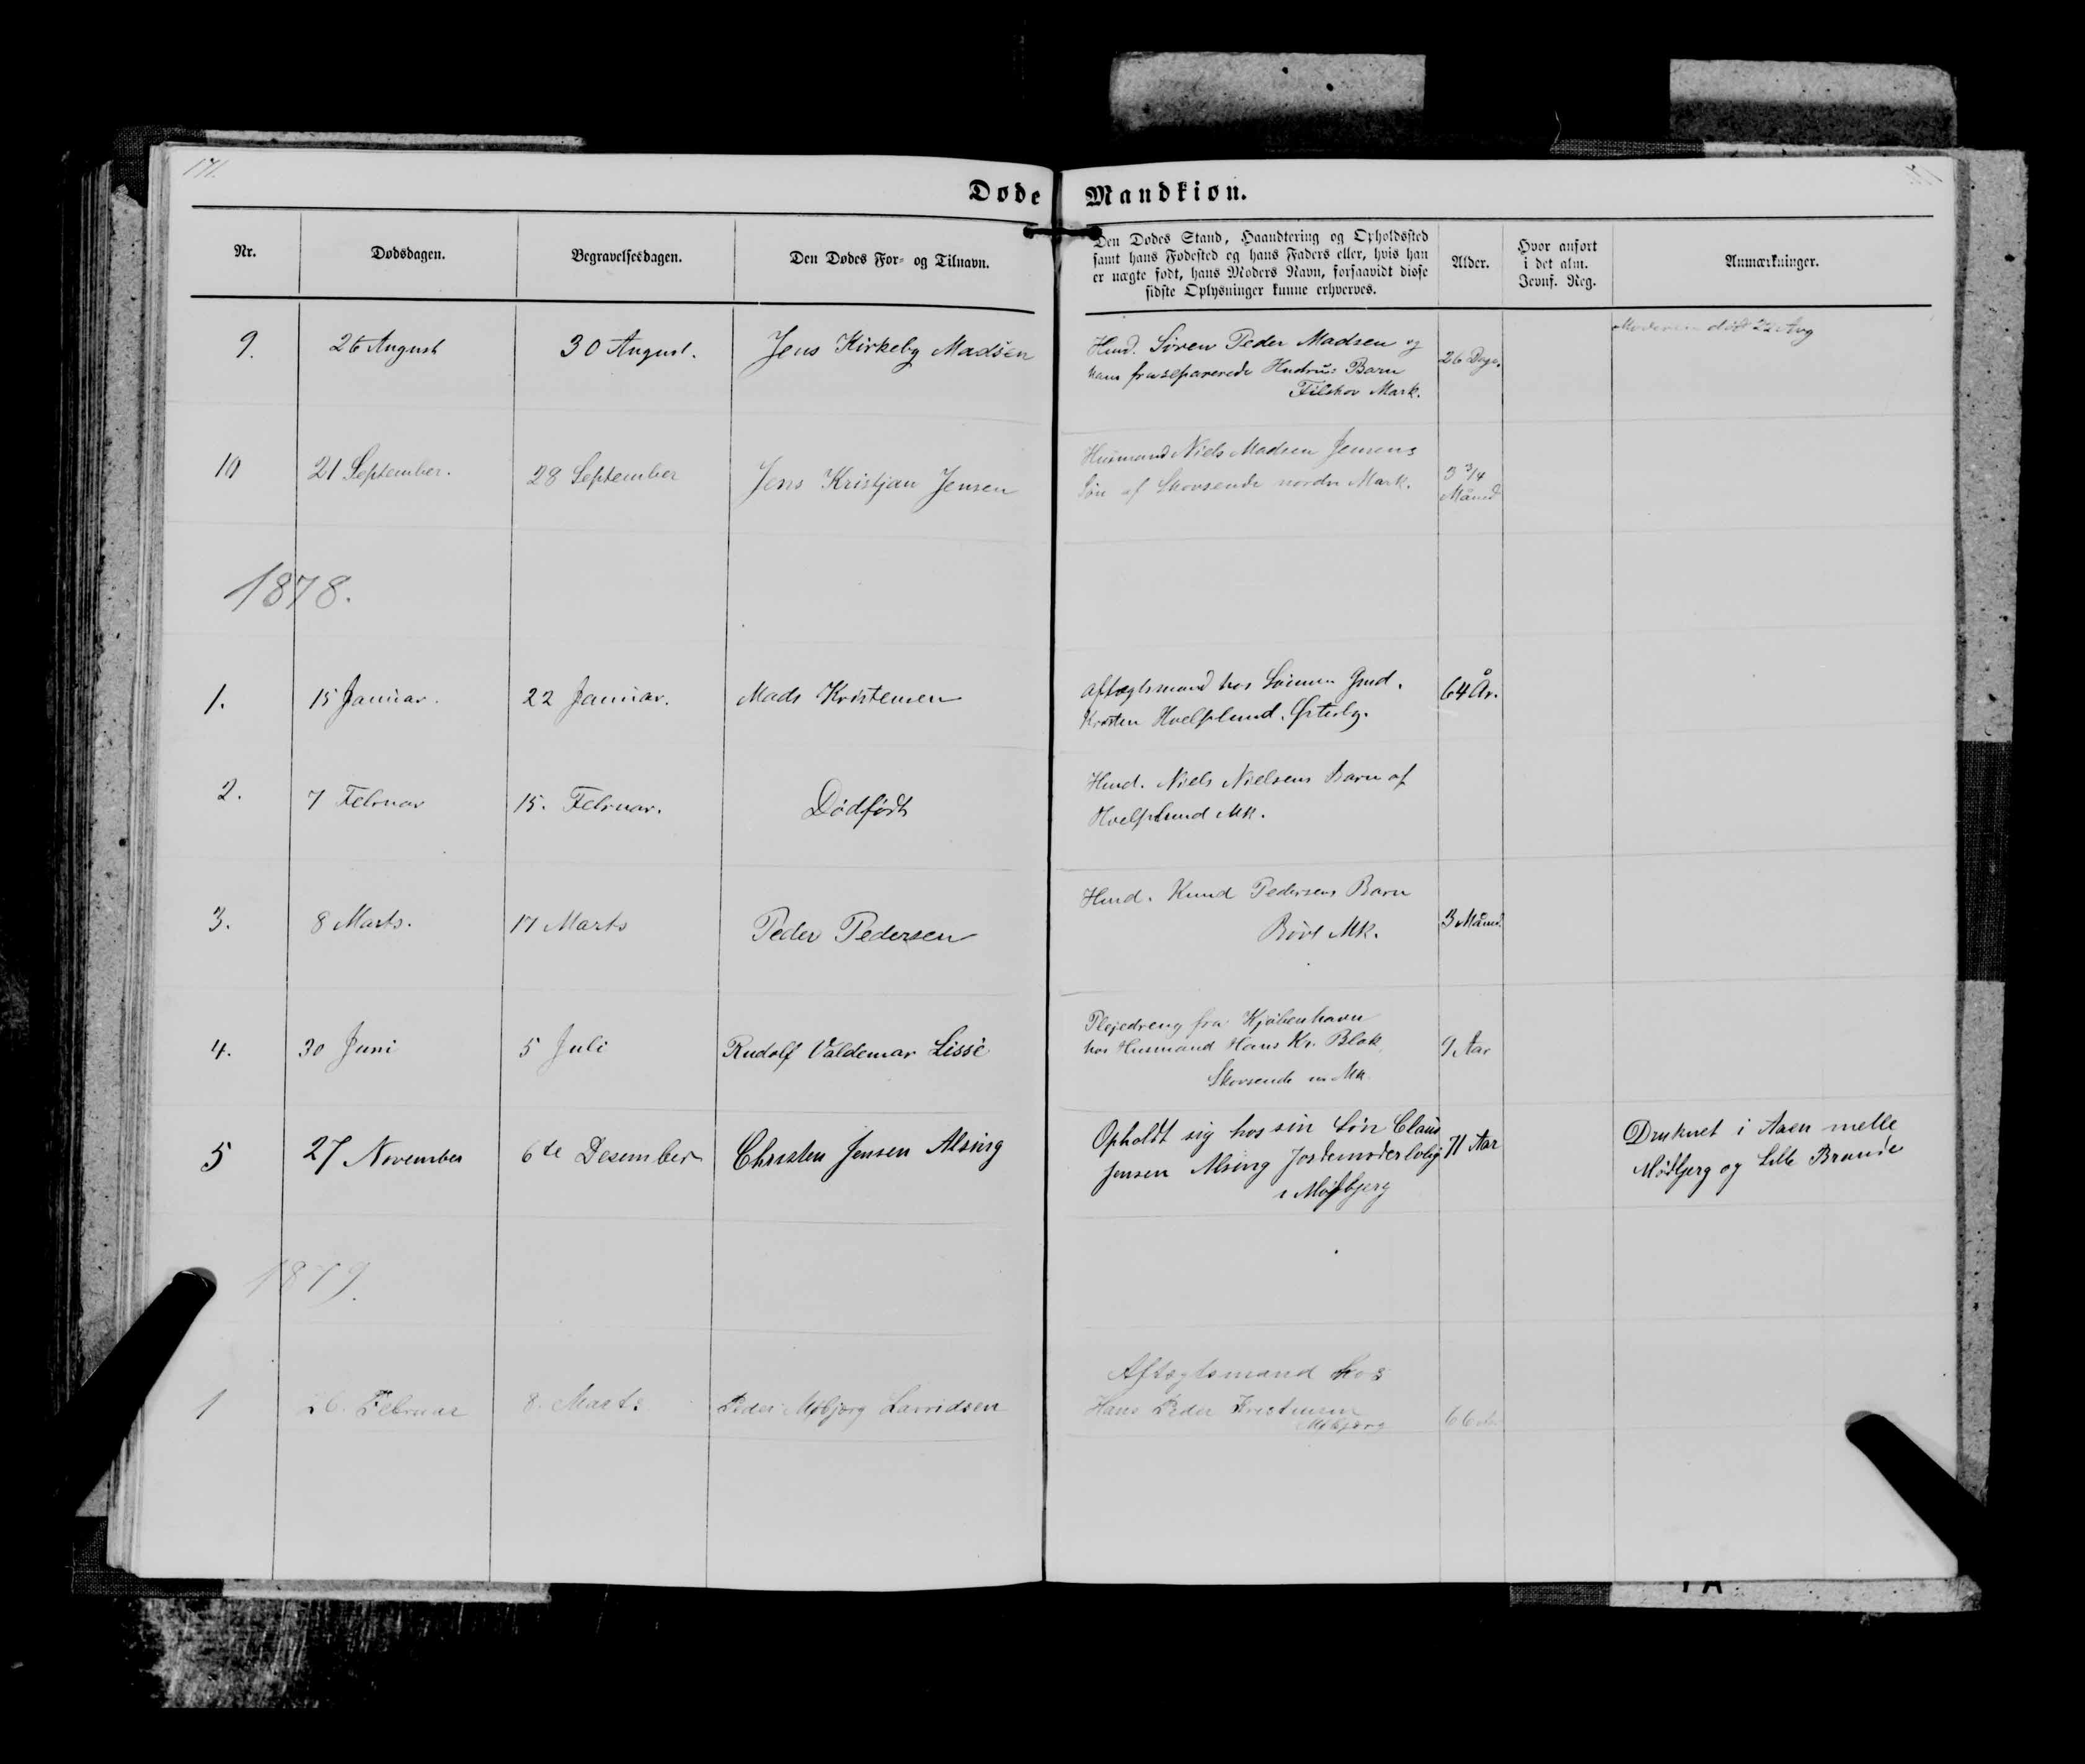 171.
Døde Mandkiøn.
Nr.
Dødsdagen.
Begravelsesdagen.
Den Dødes For- og Tilnavn.
Den Dødes Stand, Haandtering og Opholdssted
samt hans Fødested og hans Faders eller, hvis han
er uægte født, hans Moders Navn, forsaavidt disse
sidste Oplysninger kunne erhverves.
Alder.
Hvor anført
i det alm.
Jevnf. Reg.
Anmærkninger.
9.
26 August
30 August.
Jens Kirkeby Madsen
Hmd. Søren Peder Madsen og
hans fraseparerede Hustrus Barn
Filskov Mark.
26 Dage.
Moderen død 22 Aug
10
21 September.
28 September
Jens Kristjan Jensen
Husmand Niels Madsen Jensens
Søn af Skovsende nordre Mark.
5 3/4
Måned
1878.
1.
15 Januar.
22 Januar.
Mads Kristensen
Aftægtsmand hos Sønnen Gmd.
Kristen Hvelplund. Østerby.
64 År.
2.
7 Februar
15. Februar.
Dødfødt
Hmd. Niels Nielsens Barn af
Hvelplund Mk.
3.
8 Marts.
17 Marts
Peder Pedersen
Hmd. Knud Pedersens Barn
Bøvl Mk.
3 Måned.
4.
30 Juni
5 Juli
Rudolf Valdemar Lisse
Plejedreng fra Kjøbenhavn
hos Husmand Hans Kr. Blak
Skovsende n Mk.
9 Aar
5
27 November
6te Desember
Christen Jensen Alsing
Opholdt sig hos sin Søn Claus
Jensen Alsing Jordemoderbolig
i Møsbjerg
71 Aar
Druknet i Aaen melle
Mødbjerg og Lille Brande
1879.
1
26. Februar
8. Marts
Peder Møbjerg Lavridsen
Aftægtsmand hos
Hans Peder Kristensen
Møbjerg
66 Aar